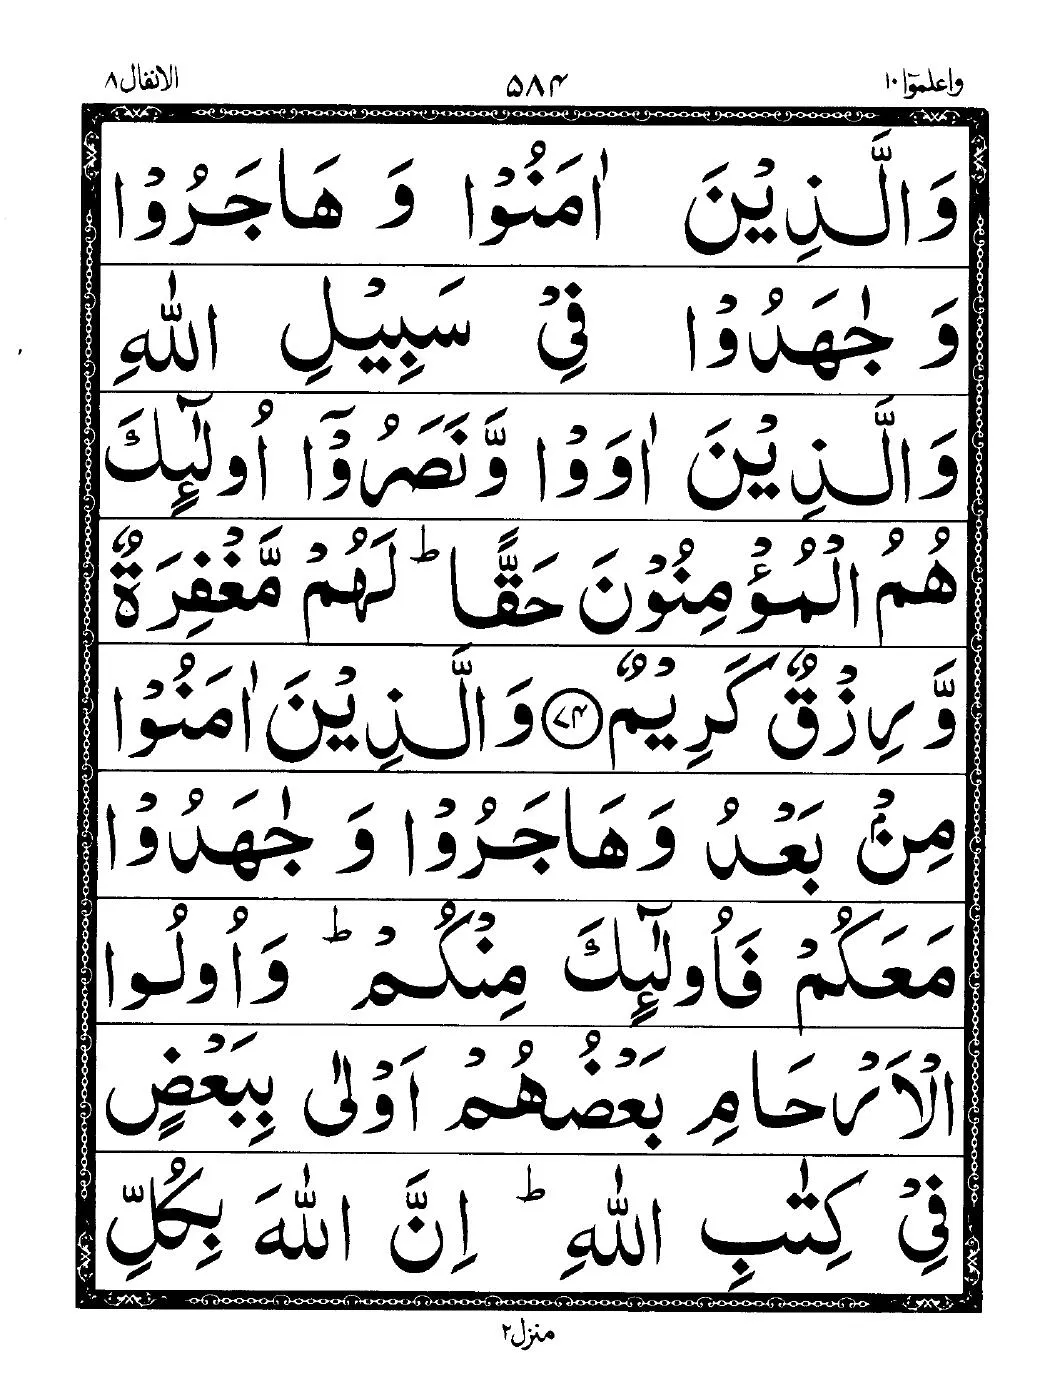 واعلموٓا ١٠ ۵۸۴ الانفال ۸
وَالَّذِيْنَ اٰمَنُوْا وَ هَاجَرُوْا
وَ جٰهَدُوْا فِيْ سَبِيْلِ اللّٰهِ
وَالَّذِيْنَ اٰوَوْا وَّنَصَرُوْٓا اُولٰٓئِكَ
هُمُ الْمُؤْمِنُوْنَ حَقًّا ؕ لَهُمْ مَّغْفِرَةٌ
وَّ رِزْقٌ كَرِيْمٌ ﴿۷۴﴾ وَالَّذِيْنَ اٰمَنُوْا
مِنْۢ بَعْدُ وَهَاجَرُوْا وَ جٰهَدُوْا
مَعَكُمْ فَاُولٰٓئِكَ مِنْكُمْ ؕ وَاُولُوا
الْاَرْحَامِ بَعْضُهُمْ اَوْلٰى بِبَعْضٍ
فِيْ كِتٰبِ اللّٰهِ ؕ اِنَّ اللّٰهَ بِكُلِّ
منزل ۲